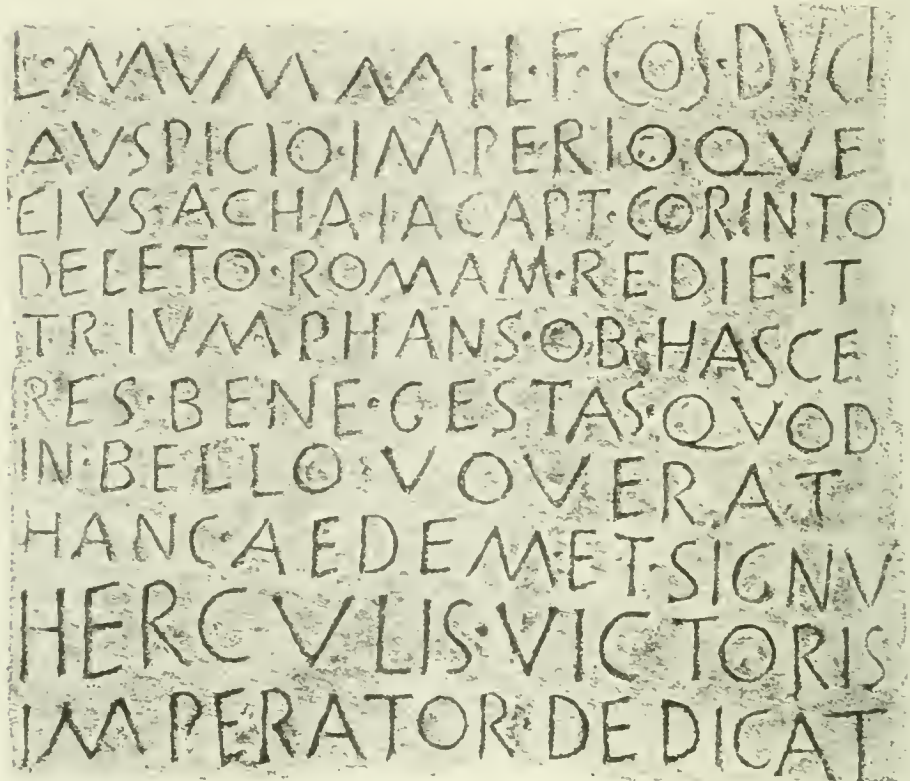 L·MVMMI·L·F·COS·DVCT
AVSPICIO·IMPERIOQVE
EIVS·ACHAIA CAPT·CORINTO
DELETO·ROMAM·REDIEIT
TRIVMPHANS·OB·HASCE
RES·BENE·GESTAS·QVOD
IN·BELLO·VOVERAT
HANC·AEDEM·ET·SIGNV
HERCVLIS·VICTORIS
IMPERATOR·DEDICAT